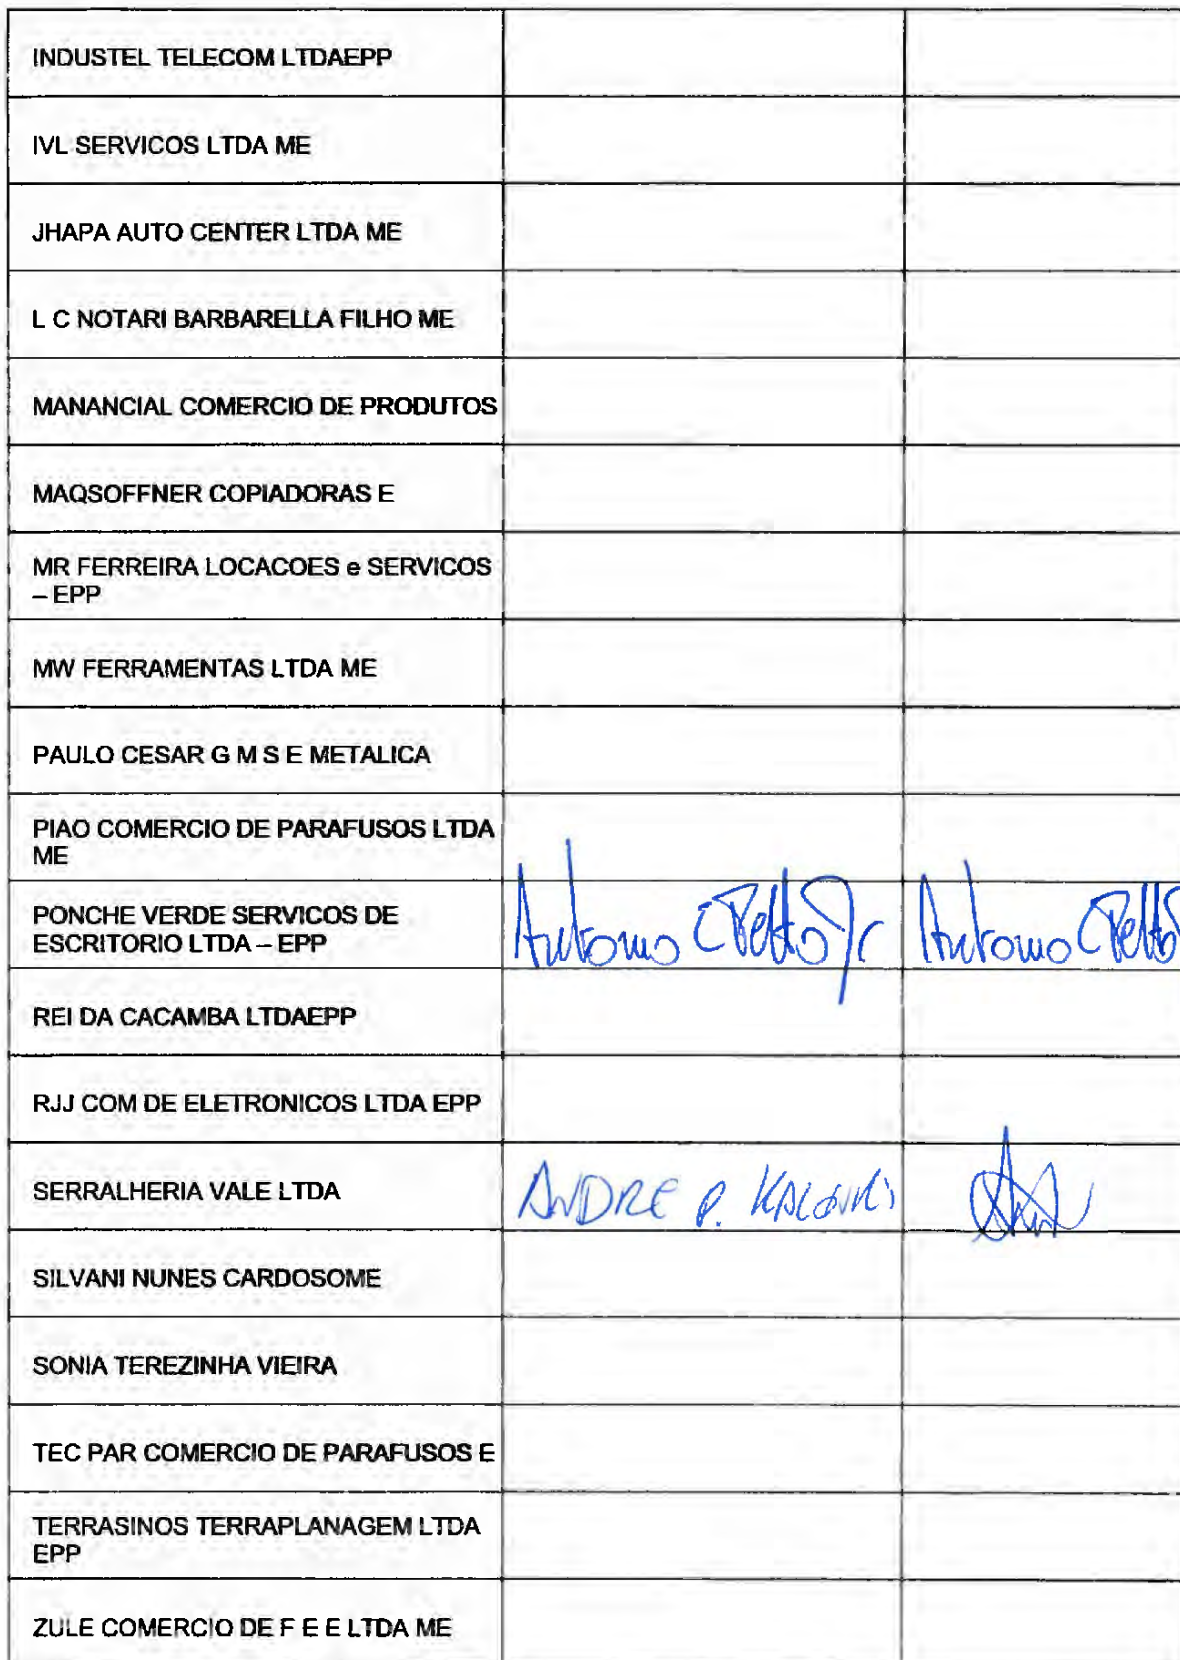 INDUSTEL TELECOM LTDAEPP
IVL SERVICOS LTDA ME
JHAPA AUTO CENTER LTDA ME
L C NOTARI BARBARELLA FILHO ME
MANANCIAL COMERCIO DE PRODUTOS
MAQSOFFNER COPIADORAS E
MR FERREIRA LOCACOES e SERVICOS
– EPP
MW FERRAMENTAS LTDA ME
PAULO CESAR G M S E METALICA
PIAO COMERCIO DE PARAFUSOS LTDA
ME
PONCHE VERDE SERVICOS DE
ESCRITORIO LTDA – EPP
Antonio Jr Antonio
REI DA CACAMBA LTDAEPP
RJJ COM DE ELETRONICOS LTDA EPP
SERRALHERIA VALE LTDA
ANDRE P.
SILVANI NUNES CARDOSOME
SONIA TEREZINHA VIEIRA
TEC PAR COMERCIO DE PARAFUSOS E
TERRASINOS TERRAPLANAGEM LTDA
EPP
ZULE COMERCIO DE F E E LTDA ME